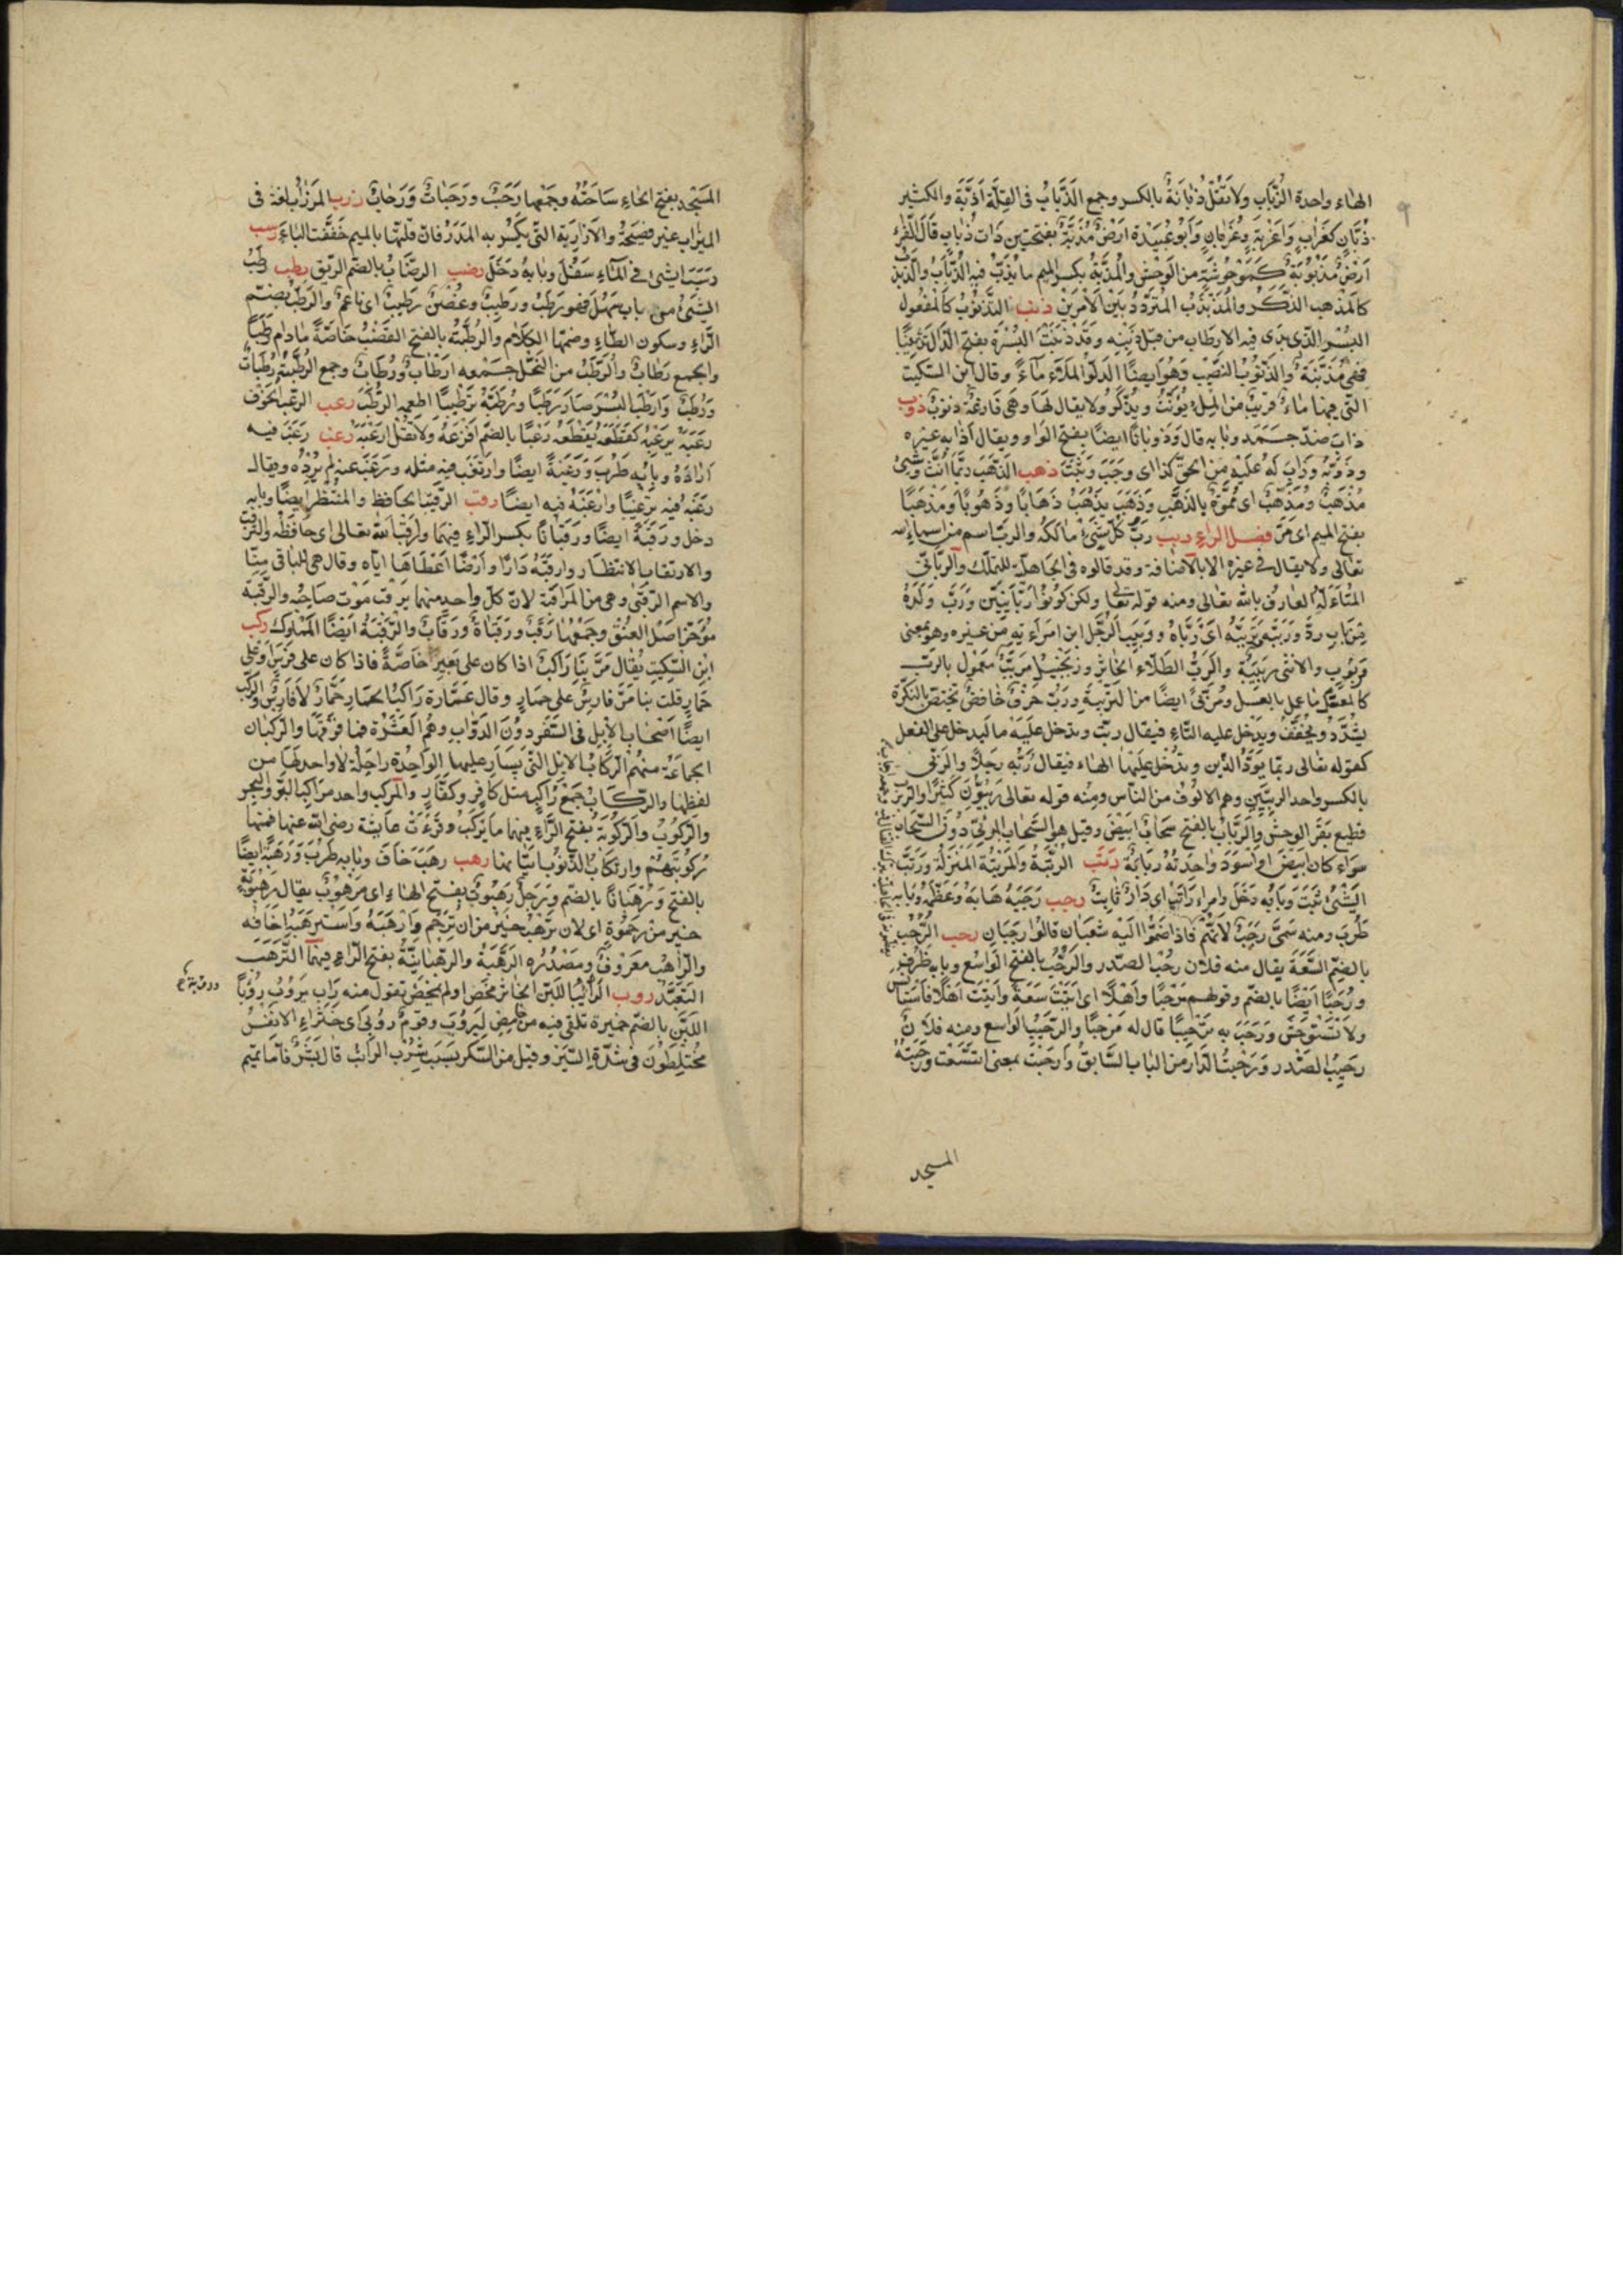 الهاء واحدة الذباب ولا تقل ذبابة بالكسر وجمع الذباب في القلة اذبة والكثير
ذبان كغراب واغربة وغربان وابو عبيدة ارض مذبة بفتحتين ذات ذباب قال الفراء
ارض مذبوبة كموحوشة من الوحش والمذبة بكسر الميم ما يذب به الذباب والذبذب
كالمذهب الذكر والمذبذب المتردد بين الامرين ذنب التذنوب كالمفعول
البسر الذي بدى فيه الارطاب من قبل ذنبه وقد ذنبت البسرة بفتح الذال تذنيبا
فهي مذنبة والذنوب النصيب وهو ايضا الدلو الملاء ماء وقال ابن السكيت
التي فيها ماء قريب من الملء يونث ويذكر ولا يقال لها وهي فارغة ذنوب ذوب
ذاب ضد جمد وبابه قال وذوبانا ايضا بفتح الواو ويقال اذابه غيره
وذوبه وذاب له عليه من الحق كذا اى وجب وثبت ذهب الذهب ربما انث وشئ
مذهب ومذهب اى مموه بالذهب وذهب يذهب ذهابا وذهوبا ومذهبا
بفتح الميم اى مر فصل الراء ربب رب كل شئ مالكه والرب اسم من اسماء الله
تعالى ولا يقال في غيره الا بالاضافة وقد قالوه في الجاهلة للملك والرباني
المتاله العارف بالله تعالى ومنه قوله تعالى ولكن كونوا ربانيين ورب ولده
من باب رد ورببه وترببه اى رباه وربيب الرجل ابن امراته من غيره وهو بمعنى
مربوب والانثى ربيبة والرب الطلاء الخاثر وزنجبيل مربب معمول بالرب
كالمعسل ما عمل بالعسل ومربى ايضا من التربية ورب حرف خافض تختص بالنكرة
يشدد ويخفف ويدخل عليه التاء فيقال ربت وتدخل عليه ما ليدخل على الفعل
كقوله تعالى ربما يود الذين وتدخل عليها الهاء فيقال ربه رجلا والربى
بالكسر واحد الربيين وهم الالوف من الناس ومنه قوله تعالى ربيون كثيرا والربرب
قطيع بقر الوحش والرباب بالفتح سحاب ابيض وقيل هو السحاب المرئي دون السحاب
سواء كان ابيض او اسود واحدته ربابة رتب الرتبة والمرتبة المنزلة ورتب
الشئ ثبت وبابه دخل وامر راتب اى دار ثابت رجب رجبه هابه وعظمه وبابه
طرب ومنه سمى رجب لانهم فاذا ضموا اليه شعبان قالوا رجبان رحب الرحب
بالضم السعة يقال منه فلان رحب الصدر والرحب بالفتح الواسع وبابه ظرف
ورحبا ايضا بالضم وقولهم مرحبا واهلا اى اتيت سعة واتيت اهلا فاستانس
ولا تستوحش ورحب به ترحيبا قال له مرحبا والرحيب الواسع ومنه فلان
رحيب الصدر ورحبت الدار من الباب السابق وارحبت بمعنى اتسعت ورحبة
المسجد
المسجد بفتح الحاء ساحته وجمعها رحب ورحبات ورحاب رزب المرزاب لغة في
الميزاب غير فصيحة والارزبة التي يكسر به المدر فان قلتها بالميم خففت الباء رسب
رسب الشئ في الماء سفل وبابه دخل رضب الرضاب بالضم الريق رطب رطب
الشئ من باب سهل فهو رطب ورطيب وغصن رطيب اى ناعم والرطب بضم
الراء وسكون الطاء وضمها الكلاء والرطبة بالفتح القضب خاصة ما دام رطبا
والجمع رطاب والرطب من النخل جمعه ارطاب ورطاب وجمع الرطبة رطبات
ورطب وارطب البسر صار رطبا ورطبه ترطيبا اطعمه الرطب رعب الرعب الخوف
رعبه يرعبه كقطعه يقطعه رعبا بالضم افزعه ولا تقل ارعبه رغب رغب فيه
اراده وبابه طرب ورغبة ايضا وارتغب فيه مثله ورغب عنه لم يرده ويقال
رغبه فيه ترغيبا وارغبه فيه ايضا رقب الرقيب الحافظ والمنتظر ايضا وبابه
دخل ورقبة ايضا ورقبانا بكسر الراء فيهما وراقب الله تعالى اى حافظه والترقب
والارتقاب الانتظار وارقبه دارا وارضا اعطاها اياه وقال هي للباقي منا
والاسم الرقبى وهي من المراقبة لان كل واحد منهما يرقب موت صاحبه والرقبة
موخر اصل العنق وجمعها رقب ورقبات ورقاب والرقبة ايضا المملوك ركب
ابن السكيت يقال مر بنا راكب اذا كان على بعير خاصة فاذا كان على فرس او على
حمار قلت بنا مر فارس على حمار وقال عمارة راكب الحمار حمار لا فارس والركب
ايضا اصحاب الابل في السفر دون الدواب وهم العشرة فما فوقها والركبان
الجماعة منهم الركاب الابل التي يسار عليها الواحدة راحلة لا واحد لها من
لفظها والركاب جمع راكب مثل كافر وكفار والمركب واحد مراكب البر والبحر
والركوب والركوبة بفتح الراء فيهما ما يركب وقرءت عايشة رضى الله عنها فمنها
ركوبتهم وارتكاب الذنوب اتيانها رهب رهب خاف وبابه طرب ورهبة ايضا
بالفتح ورهبانا بالضم ورجل رهبوت بفتح الهاء اى مرهوب يقال رهبوت
خير من رحموت اى لان ترهب خير من ان ترحم وارهبه واسترهبه اخافه
والراهب معروف ومصدره الرهبة والرهبانية بفتح الراء فيهما الترهب
التعبد روب الرائب اللبن الخاثر مخض او لم يمخض تقول منه راب يروب روبا
اللبن بالضم خميرة تلقى فيه من الحامض ليروب وقوم روبى اى خثراء الانفس
مختلطون في شدة السير وقيل من السكر بسبب شرب الرائب قال بشر فاما تميم